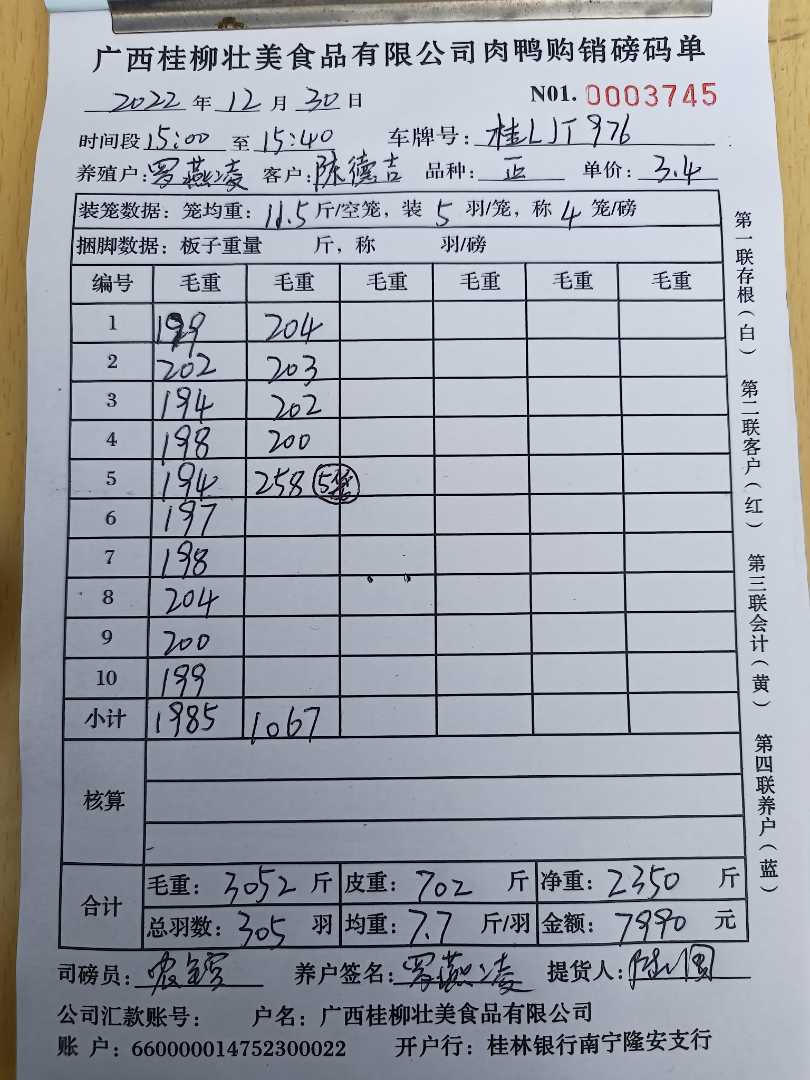 广西桂柳壮美食品有限公司肉鸭购销磅码单
2022 年 12 月 30 日 N01. 0003745
时间段 15:00 至 15:40 车牌号: 桂LJT976
养殖户: 罗燕凌 客户: 陈德吉 品种: 正 单价: 3.4
装笼数据: 笼均重: 11.5 斤/空笼, 装 5 羽/笼, 称 4 笼/磅
捆脚数据: 板子重量 斤, 称 羽/磅
编号 毛重 毛重 毛重 毛重 毛重 毛重
1 199 204
2 202 203
3 194 202
4 198 200
5 194 258 5笼
6 197
7 198
8 204
9 200
10 199
小计 1985 1067
核算
合计 毛重: 3052 斤 皮重: 702 斤 净重: 2350 斤
总羽数: 305 羽 均重: 7.7 斤/羽 金额: 7990 元
司磅员: 养户签名: 罗燕凌 提货人:
公司汇款账号: 户名: 广西桂柳壮美食品有限公司
账 户: 660000014752300022 开户行: 桂林银行南宁隆安支行
第一联存根(白) 第二联客户(红) 第三联会计(黄) 第四联养户(蓝)